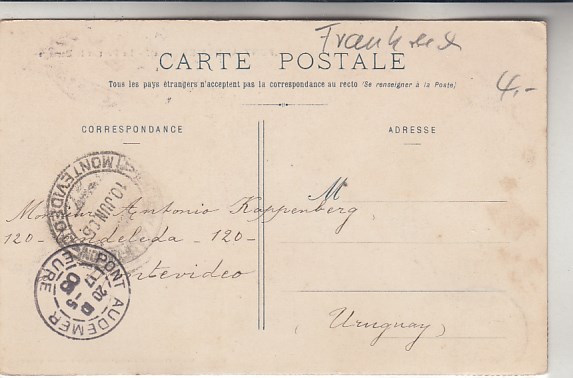 Frankreich
CARTE POSTALE
Tous les pays étrangers n'acceptent pas la correspondance au recto (Se renseigner à la Poste)
4.-
CORRESPONDANCE
ADRESSE
MONTEVIDEO
10 JUN 05
M
Monsieur Antonio Kappenberg
120 - - 120 -
Montevideo
(Uruguay)
PONT AUDEMER
EURE
20 5